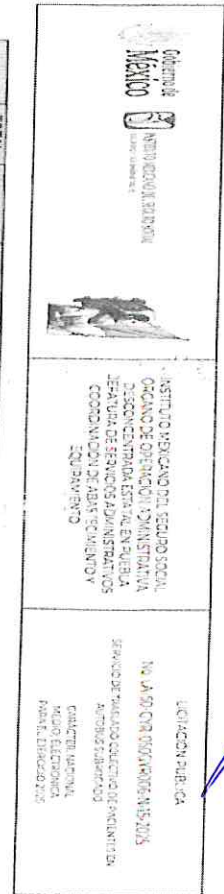 Gobierno de
México
INSTITUTO MEXICANO DEL SEGURO SOCIAL
INSTITUTO MEXICANO DEL SEGURO SOCIAL
ÓRGANO DE OPERACIÓN ADMINISTRATIVA
DESCONCENTRADA ESTATAL EN PUEBLA
JEFATURA DE SERVICIOS ADMINISTRATIVOS
COORDINACIÓN DE ABASTECIMIENTO Y
EQUIPAMIENTO
LICITACIÓN PÚBLICA
SERVICIO DE TRASLADO COLECTIVO DE PACIENTES EN
AUTOBÚS SUBROGADO
CARÁCTER NACIONAL
MEDIO: ELECTRÓNICA
PARA EL EJERCICIO 2025